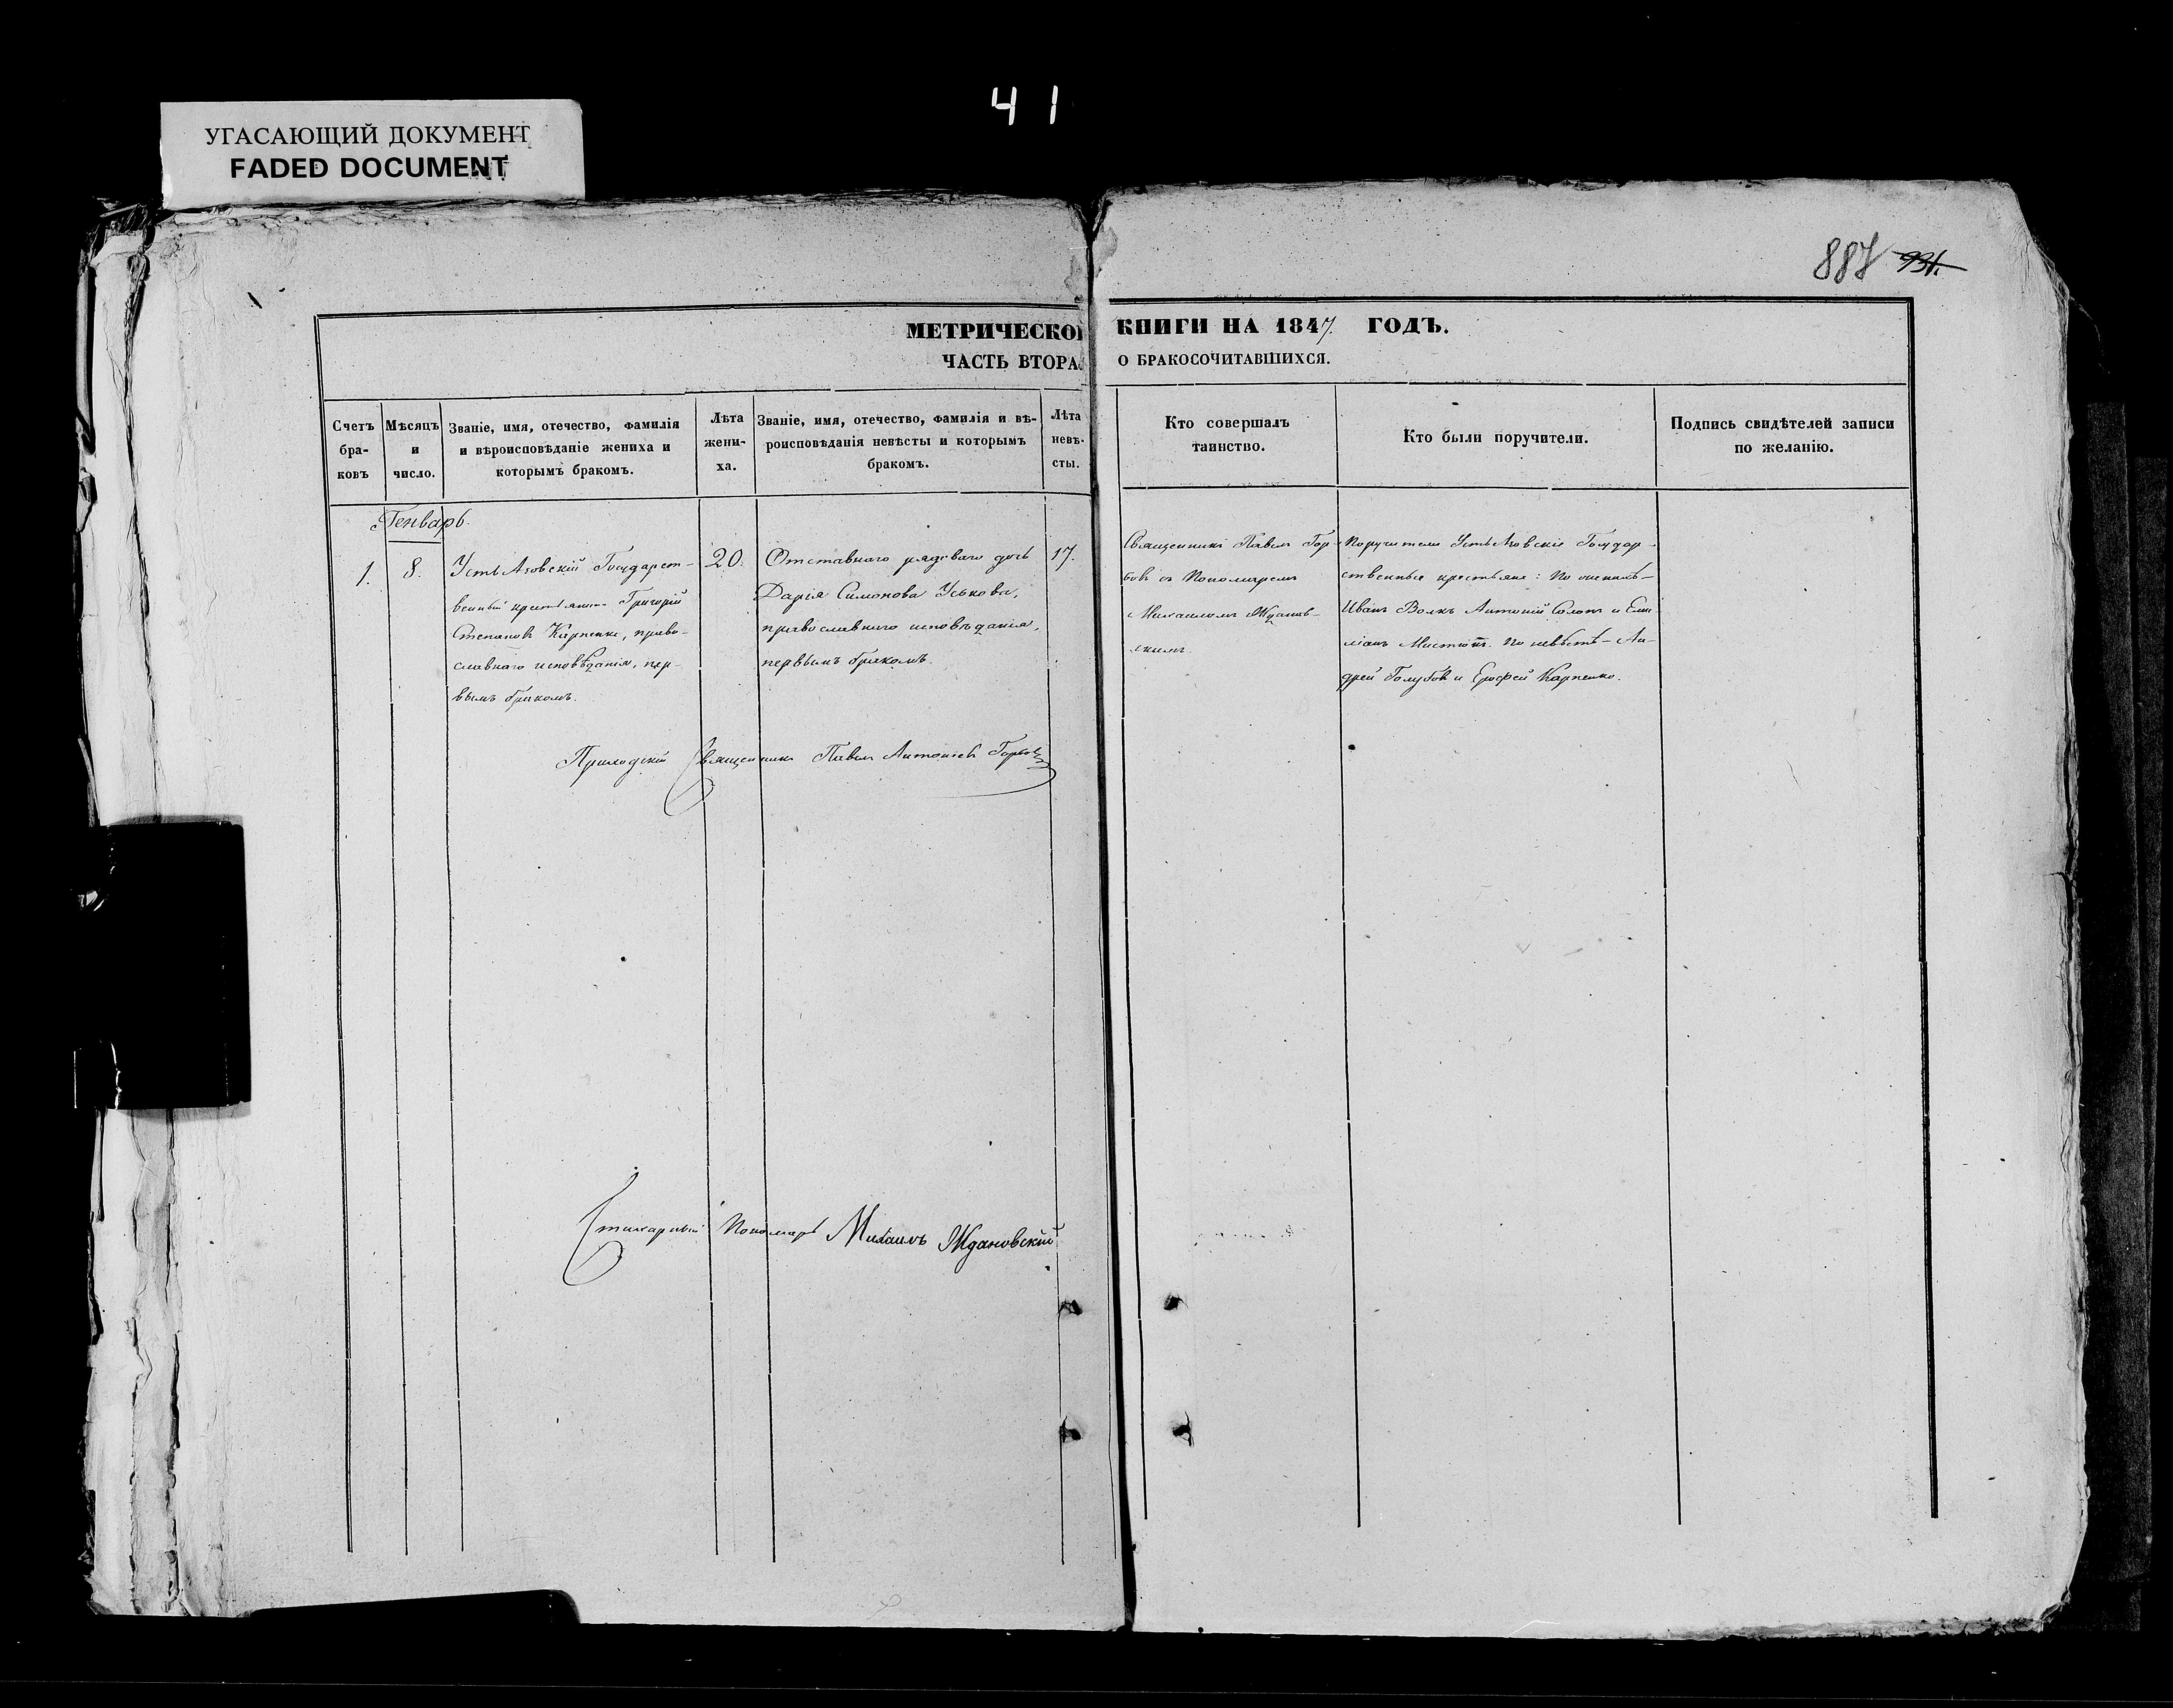 41
УГАСАЮЩИЙ ДОКУМЕНТ
FADED DOCUMENT
887 931.
МЕТРИЧЕСКОЙ КНИГИ НА 1847. ГОДЪ.
ЧАСТЬ ВТОРАЯ О БРАКОСОЧИТАВШИХСЯ.
Счетъ
бра-
ковъ
Мѣсяцъ
и
число.
Званіе, имя, отечество, фамилія
и вѣроисповѣданіе жениха и
которымъ бракомъ.
Лѣта
жени-
ха.
Званіе, имя, отечество, фамилія и вѣ-
роисповѣданія невѣсты и которымъ
бракомъ.
Лѣта
невѣ-
сты.
Кто совершалъ
таинство.
Кто были поручители.
Подпись свидѣтелей записи
по желанію.
Генварь.
1.
8.
Усть Азовскій Государст-
венный крестьянинъ Григорій
Степановъ Карпенко, право-
славнаго исповѣданія, пер-
вымъ бракомъ.
20.
Отставнаго рядоваго дочь
Дарья Симонова Уськова,
православнаго исповѣданія,
первымъ бракомъ.
17.
Священникъ Павелъ Гор-
бовъ съ Пономаремъ
Михаиломъ Ждановс-
Поручители Усть Азовскіе Государ-
ственные крестьяне: По женихѣ-
Иванъ Волкъ Антоній Солопъ и Еми
ліанъ По невѣстѣ - Ан-
дрей Голубовъ и Ерофей Карпенко.
Приходскій Священникъ Павелъ Антоніевъ Горбовъ
Стихарный Пономарь Михаилъ Ждановскій